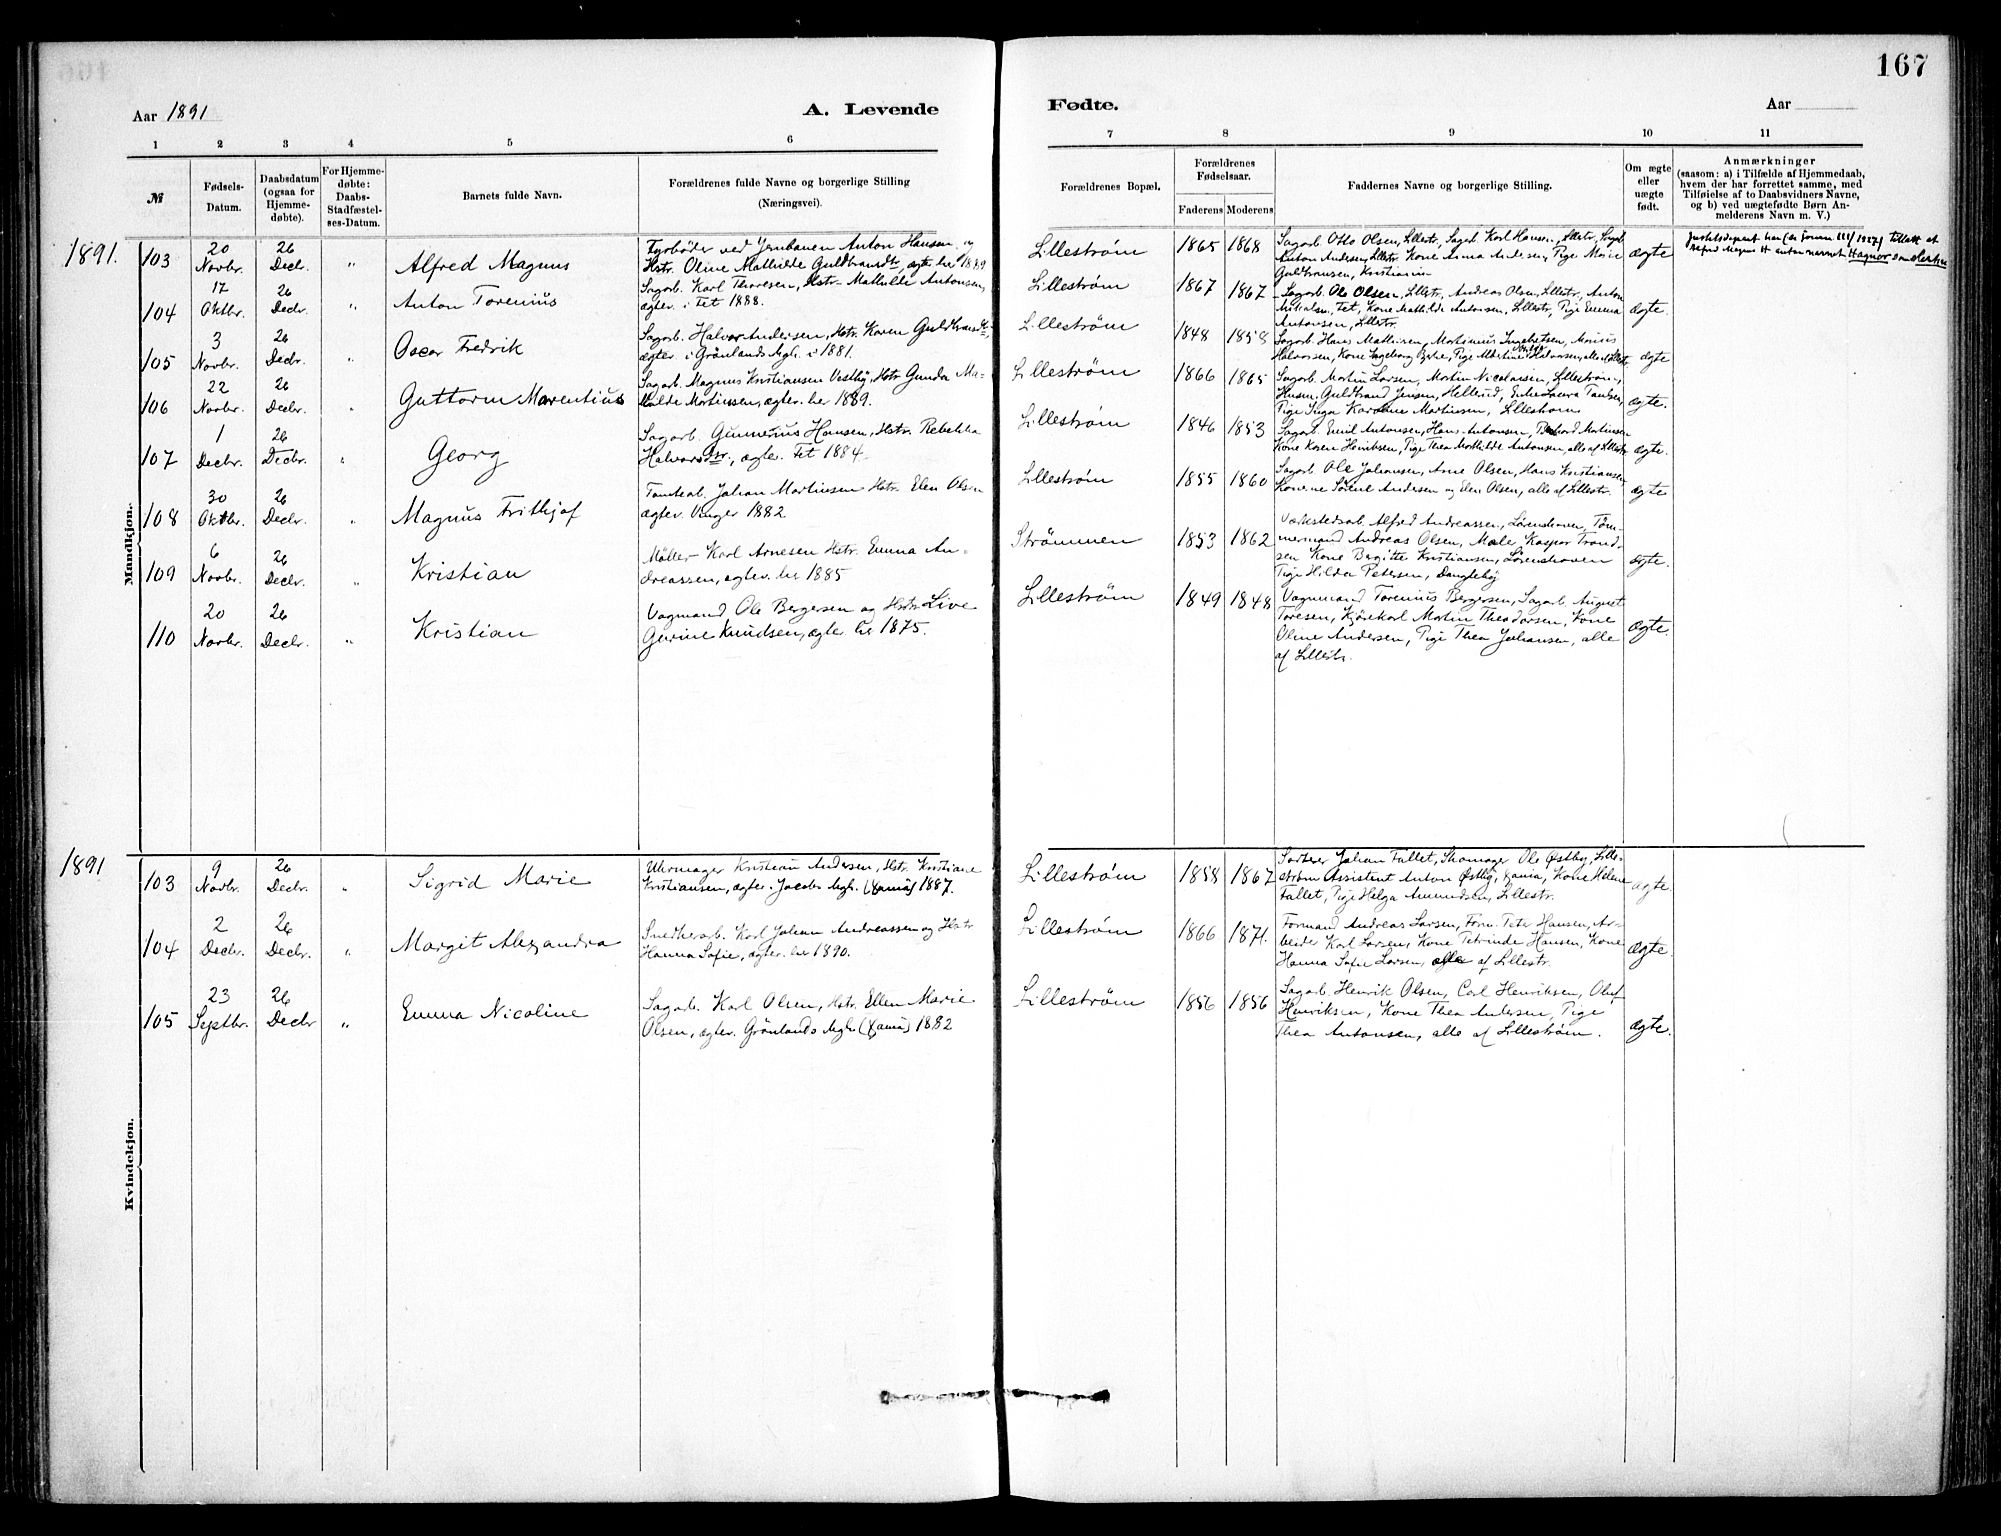 167
Aar 1891
A. Levende
Fødte.
Aar
1 2 3 4 5 6
7 8 9 10 11
№
Fødsels-
Datum.
Daabsdatum
(ogsaa for
Hjemme-
døbte).
For Hjemme-
døbte:
Daabs-
Stadfæstel-
ses-Datum.
Barnets fulde Navn.
Forældrenes fulde Navne og borgerlige Stilling
(Næringsvei).
Forældrenes Bopæl.
Forældrenes
Fødselsaar.
Faderens Moderens
Faddernes Navne og borgerlige Stilling.
Om ægte
eller
uægte
født.
Anmærkninger
(saasom: a) i Tilfælde af Hjemmedaab,
hvem der har forrettet samme, med
Tilføielse af to Daabsvidners Navne,
og b) ved uægtefødte Børn An-
melderens Navn m. V.)
1891.
Mandkjøn.
103
20
Novbr.
26
Decbr.
"
Alfred Magnus
Fyrbøder ved Jernbanen Anton Hansen og
Hstr. Oline Mathilde Guldbrandsdtr, ægtev. her 1889
Lillestrøm
1865 1868
Sagarb. Otto Olsen, Lillestr., Sagarb. Karl Hansen, Lillestr.,
Anton Andersen, Lillestr. Kone Anna Andersen, Pige Marie
Guldbransen, Kristiania
ægte
104
17
Oktbr.
26
Decbr.
"
Anton Torenius
Sagarb. Karl Thoresen, Hstr. Mathilde Antonsen,
ægtev. i Fet 1888.
Lillestrøm
1867 1867
Sagarb. Ole Olsen, Lillestr., Andreas Olsen, Lillestr., Anton
Mikalsen, Fet, Kone Mathilde Antonsen, Lillestr., Pige Emma
Antonsen, Lillestr.
ægte.
105
3
Novbr.
26
Decbr.
"
Oscar Fredrik
Sagarb. Halvor Andersen, Hstr. Karen Guldbrandsdtr.,
ægtev. i Grønlands Mgh. i 1881.
Lillestrøm
1848 1858
Sagarb. Hans Mathisen, Martinius Ingebretsen, Marius
Halvorsen, Kone Ingeborg Pige Albertine Halvorsen, alle af Lillestr.
ægte
106
22
Novbr.
26
Decbr.
"
Guttorm Marentius
Sagarb. Magnus Kristiansen Vestby, Hstr. Gunda Ma-
thilde Martinsen, ægtev. her 1889.
Lillestrøm
1866 1865
Sagarb. Martin Larsen, Martin Nicolaisen, Lillestrøm,
Husm. Guldbrand Jensen, Hellerud, Enke Laura Paulsen,
Pige Inga Karoline Martinsen, Lillestrøm
ægte.
107
1
Decbr.
26
Decbr.
"
Georg
Sagarb. Gunnerius Hansen, Hstr. Rebekka
Halvorsdtr., ægtev. Fet 1884.
Lillestrøm
1846 1853
Sagarb. Emil Antonsen, Hans Antonsen, Martinsen
Kone Karen Henriksen, Pige Thea Mathilde Antonsen, alle af Lillestr.
ægte.
108
30
Oktbr.
26
Decbr.
"
Magnus Frithjof
Tomteab. Johan Martinsen Hstr. Elen Olsen
ægtev. Vinger 1882
Lillestrøm
1855 1860
Sagarb. Ole Johansen, Arne Olsen, Hans Kristiansen
Konerne Sørine Andersen og Elen Olsen, alle af Lillestr.
ægte
109
6
Novbr.
26
Decbr.
"
Kristian
Møller Karl Arnesen Hstr. Emma An-
dreassen, ægtev. her 1885
Strømmen
1853 1862
Værkstedsarb. Alfred Andreassen, Lørenskoven, Tøm-
mermand Andreas Olsen, Maler Kaspar Trond-
sen Kone Bergitte Kristiansen, Lørenskoven
Pige Hilda Petersen,
ægte.
110
20
Novbr.
26
Decbr.
"
Kristian
Vogmand Ole Bergersen og Hstr. Live
Gurine Knudsen, ægte. her 1875.
Lillestrøm
1849 1848
Vogmand Torenius Bergersen, Sagarb. August
Toresen, Kjørekarl Martin Theodorsen, Kone
Oline Andersen, Pige Thea Johansen, alle
af Lillestr.
ægte.
1891
Kvindekjøn.
103
9
Novbr.
26
Decbr.
"
Sigrid Marie
Uhrmager Kristian Andersen, Hstr. Kristiane
Kristiansen, ægtev. Jacobs Mgh. (Xania) 1887.
Lillestrøm
1858 1867
Sorterer Johan Fallet, Skomager Ole Østby, Lille-
strøm Assistent Anton Østby, Xania, Kone Helene
Fallet, Pige Helga Amundsen, Lillestr.
ægte.
104
2
Decbr.
26
Decbr.
"
Margit Alexandra
Snedkerarb. Karl Johan Andreassen og Hstr
Hanna Sofie, ægtev. her 1890.
Lillestrøm
1866 1871.
Formand Andreas Larsen, Form. Peter Hansen, Ar-
beider Karl Larsen, Kone Petrinde Hansen, Kone
Hanna Sofie Larsen, alle af Lillestr.
ægte.
105
23
Septbr.
26
Decbr
"
Emma Nicoline
Sagarb. Karl Olsen, Hstr. Ellen Marie
Olsen, ægtev. Grønlands Mgh. (Xania) 1882
Lillestrøm
1856 1856
Sagarb. Henrik Olsen, Carl Henriksen, Oluf
Henriksen, Kone Thea Andersen, Pige
Thea Antonsen, alle af Lillestrøm.
ægte.